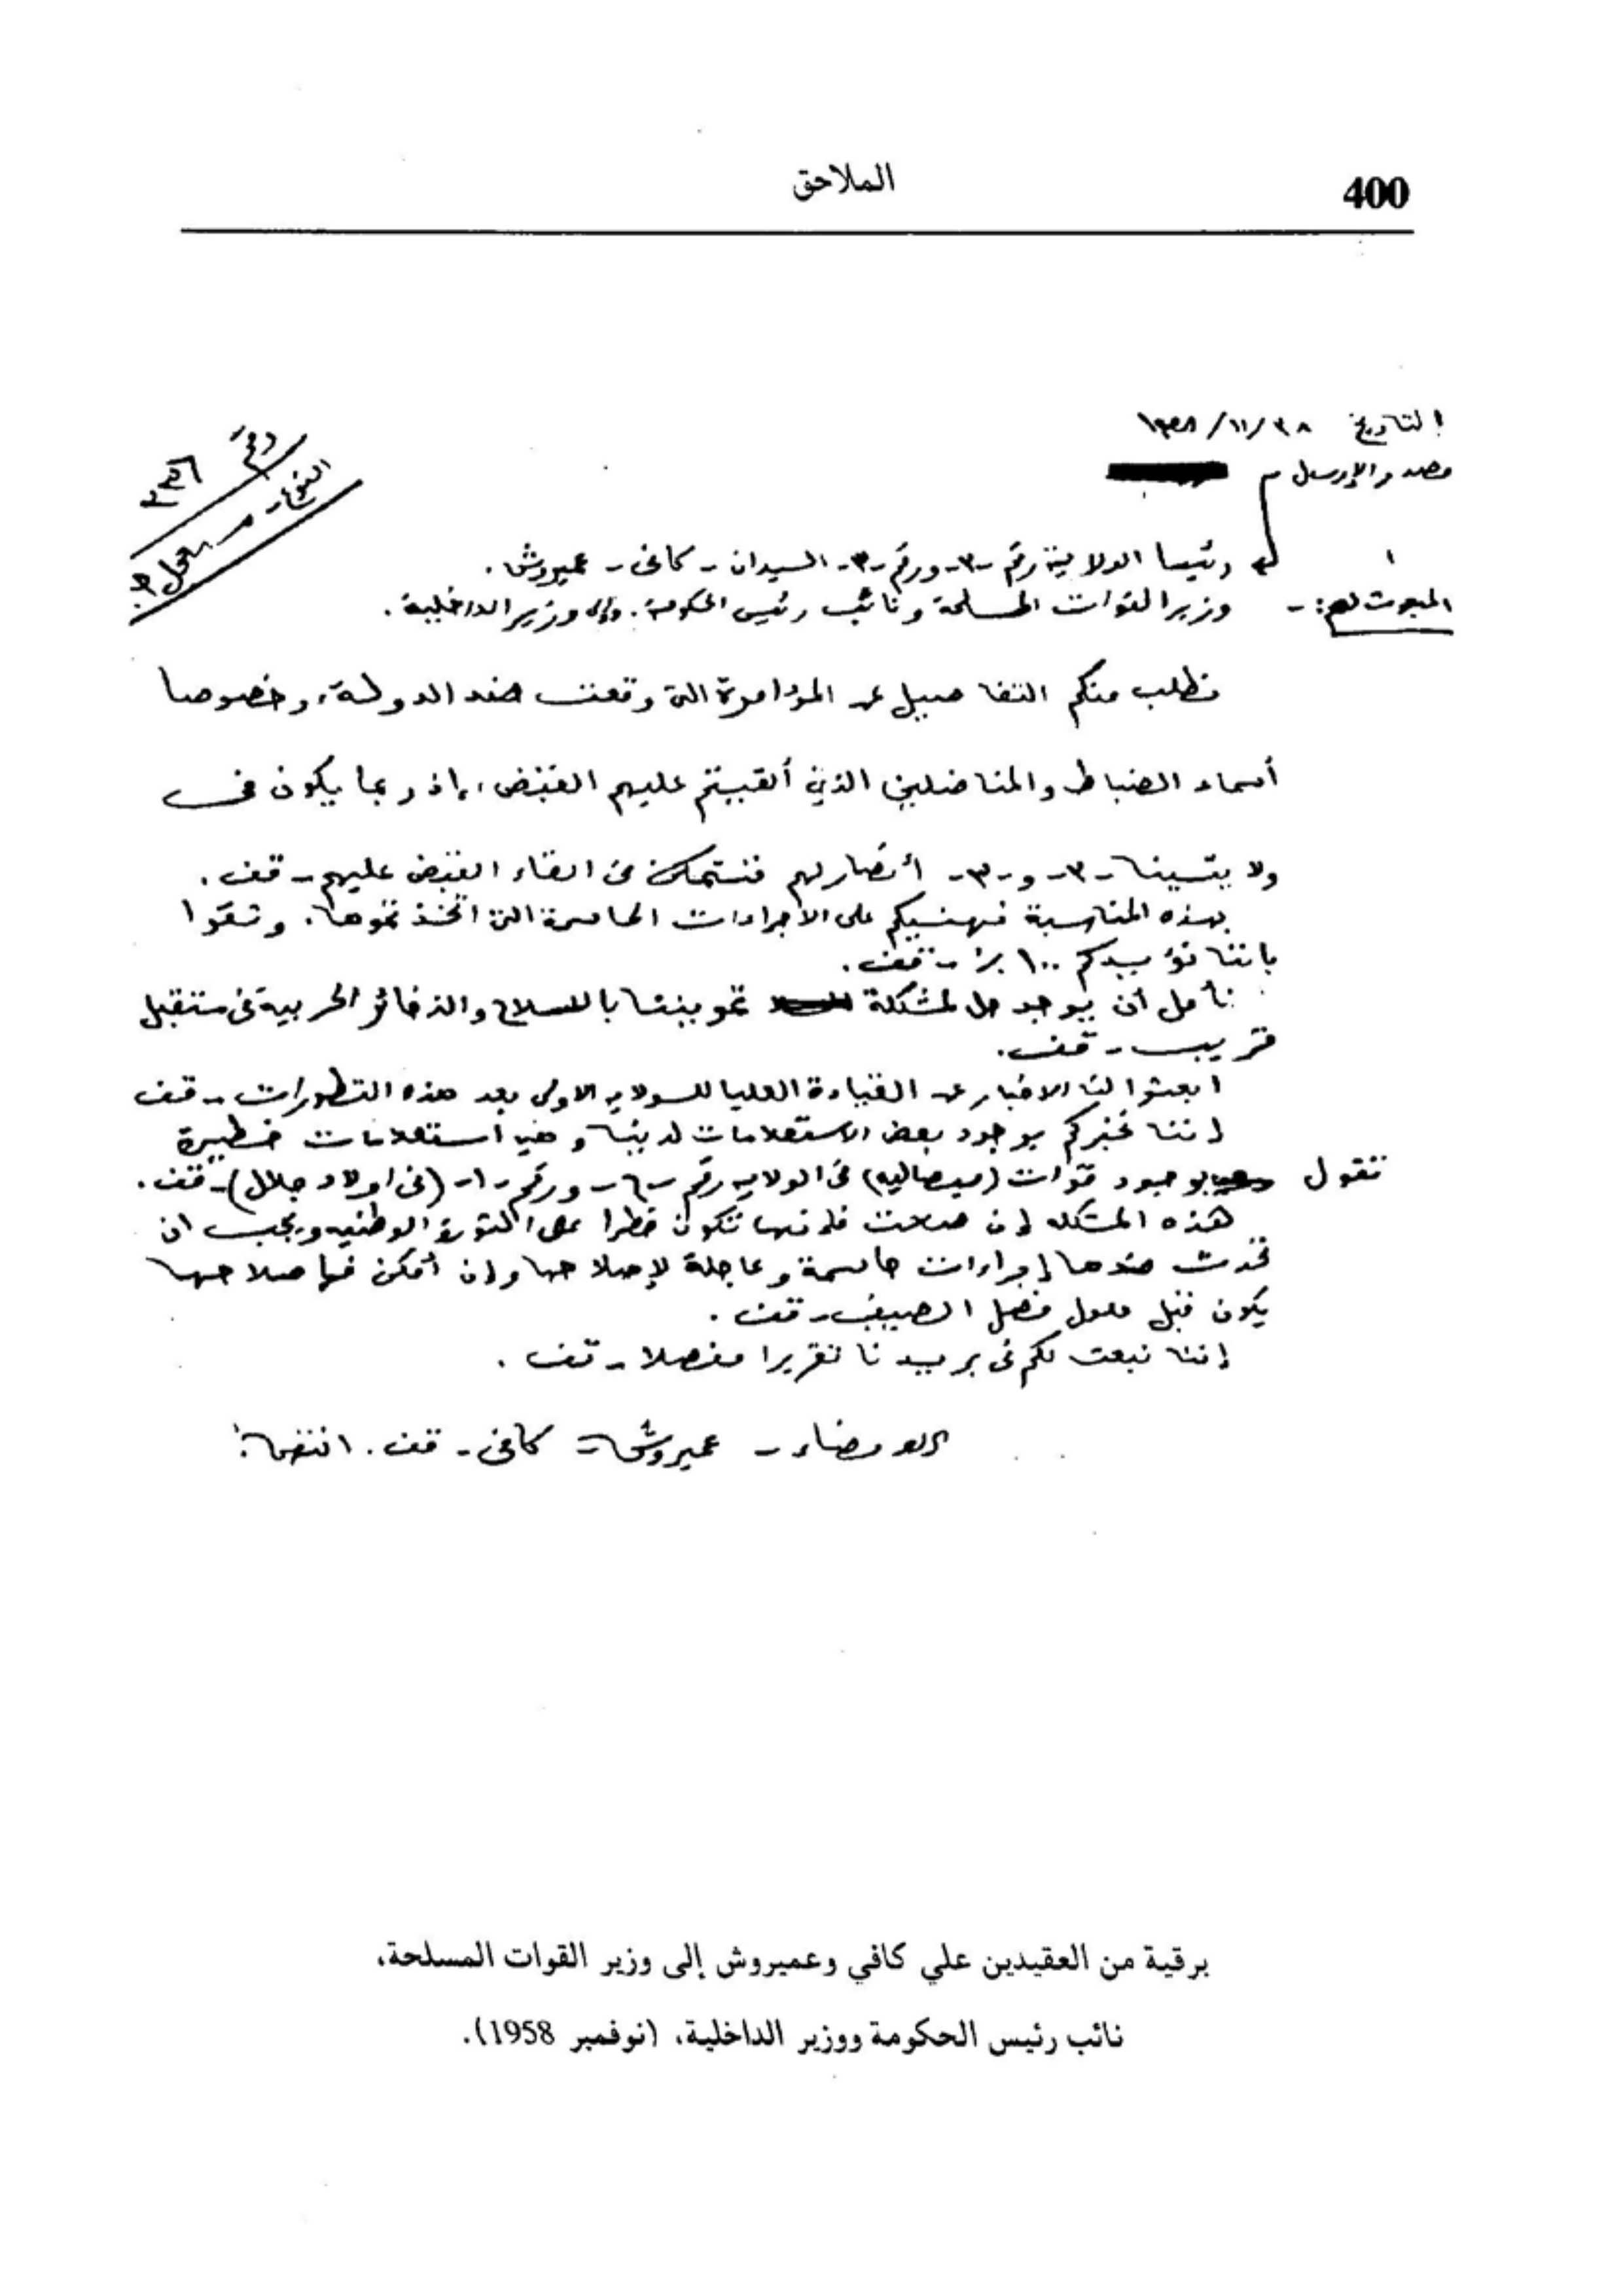 400
الملاحق
التاريخ ٢٨/١١/١٩٥٨
مصدر الإرسال
رئيسا الولاية رقم -٢- ورقم -٣- السيدان - كافى - عميروش .
المبعوث لهم :- وزير القوات المسلحة ونائب رئيس الحكومة . وإلى وزير الداخلية .
نطلب منكم التفاصيل عن المؤامرة التى وقعت ضد الدولة، وخصوصا
أسماء الضباط والمناضلين الذين ألقيتم عليهم القبض، إذ ربما يكون فى
ولايتينا -٢- و -٣- أنصار لهم فنتمكن من القاء القبض عليهم - قف .
بهذه المناسبة نهنيكم على الاجراءات الحاسمة التى اتخذتموها . وثقوا
باننا نؤيدكم ١٠٠ ٪ - قف .
نأمل أن يوجد حل لمشكلة تموينشا بالسلاح والذخائر الحربية فى مستقبل
قريب - قف .
ابعثوا لنا الاخبار عن القيادة العليا للولايه الاولى بعد هذه التطورات - قف
إننا نخبركم بوجود بعض الاستعلامات لدينا وهى استعلامات خطيرة
تقول بوجود قوات (ميصاليه) فى الولايه رقم -٦- ورقم -١- (فى اولاد جلال) - قف .
هذه المشكله إن صحت فإنها تكون خطرا على الثورة الوطنيه ويجب ان
تحدث ضدها إجراءات حاسمة وعاجلة لإصلاحها وإن أمكن فإصلاحها
يكون قبل حلول فصل الصيف - قف .
إننا نبعث لكم فى بريدنا تقريرا مفصلا - قف .
الامضاء - عميروش - كافى - قف . انتهى
برقية من العقيدين علي كافي وعميروش إلى وزير القوات المسلحة،
نائب رئيس الحكومة ووزير الداخلية، (نوفمبر 1958).